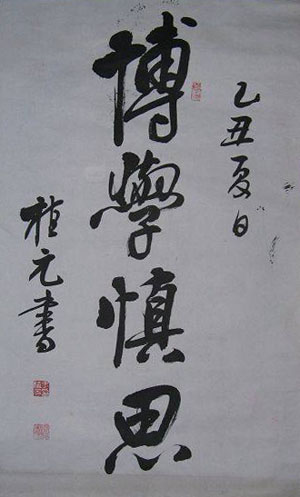 乙丑夏日
博學慎思
植元書